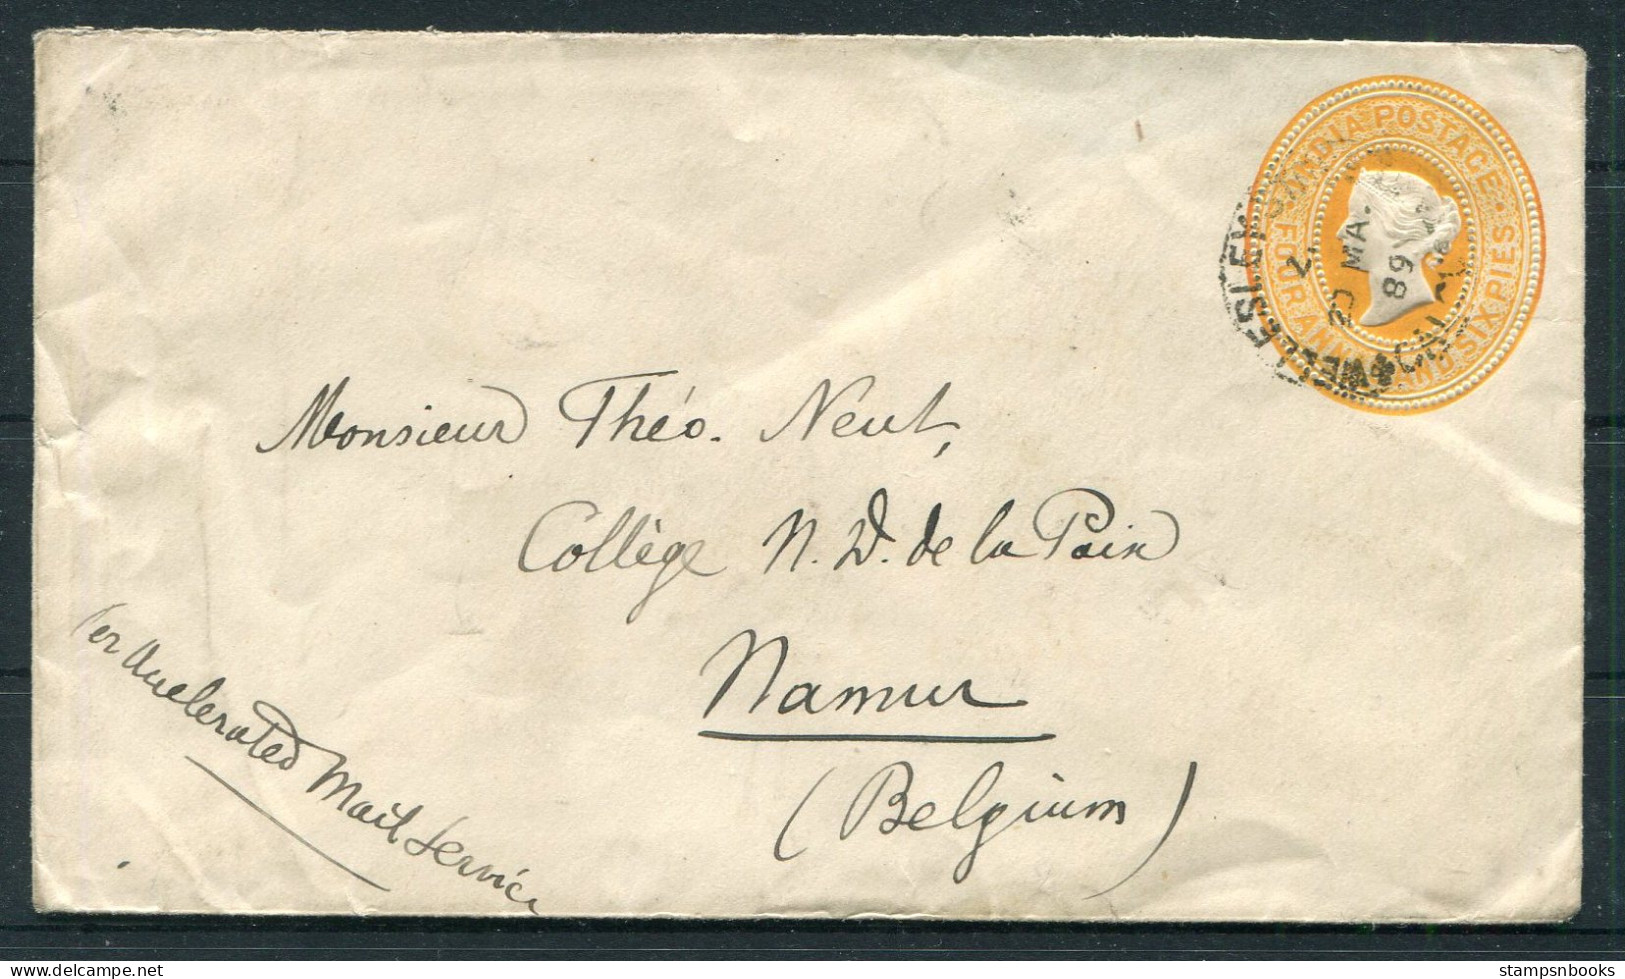 INDIA POSTAGE
FOUR ANNAS AND SIX PIES
WELLESLEY
MA.
89
Monsieur Théo. Neut,
Collège N. D. de la Paix
Namur
(Belgium)
Per Accelerated Mail Service
stampsnbooks